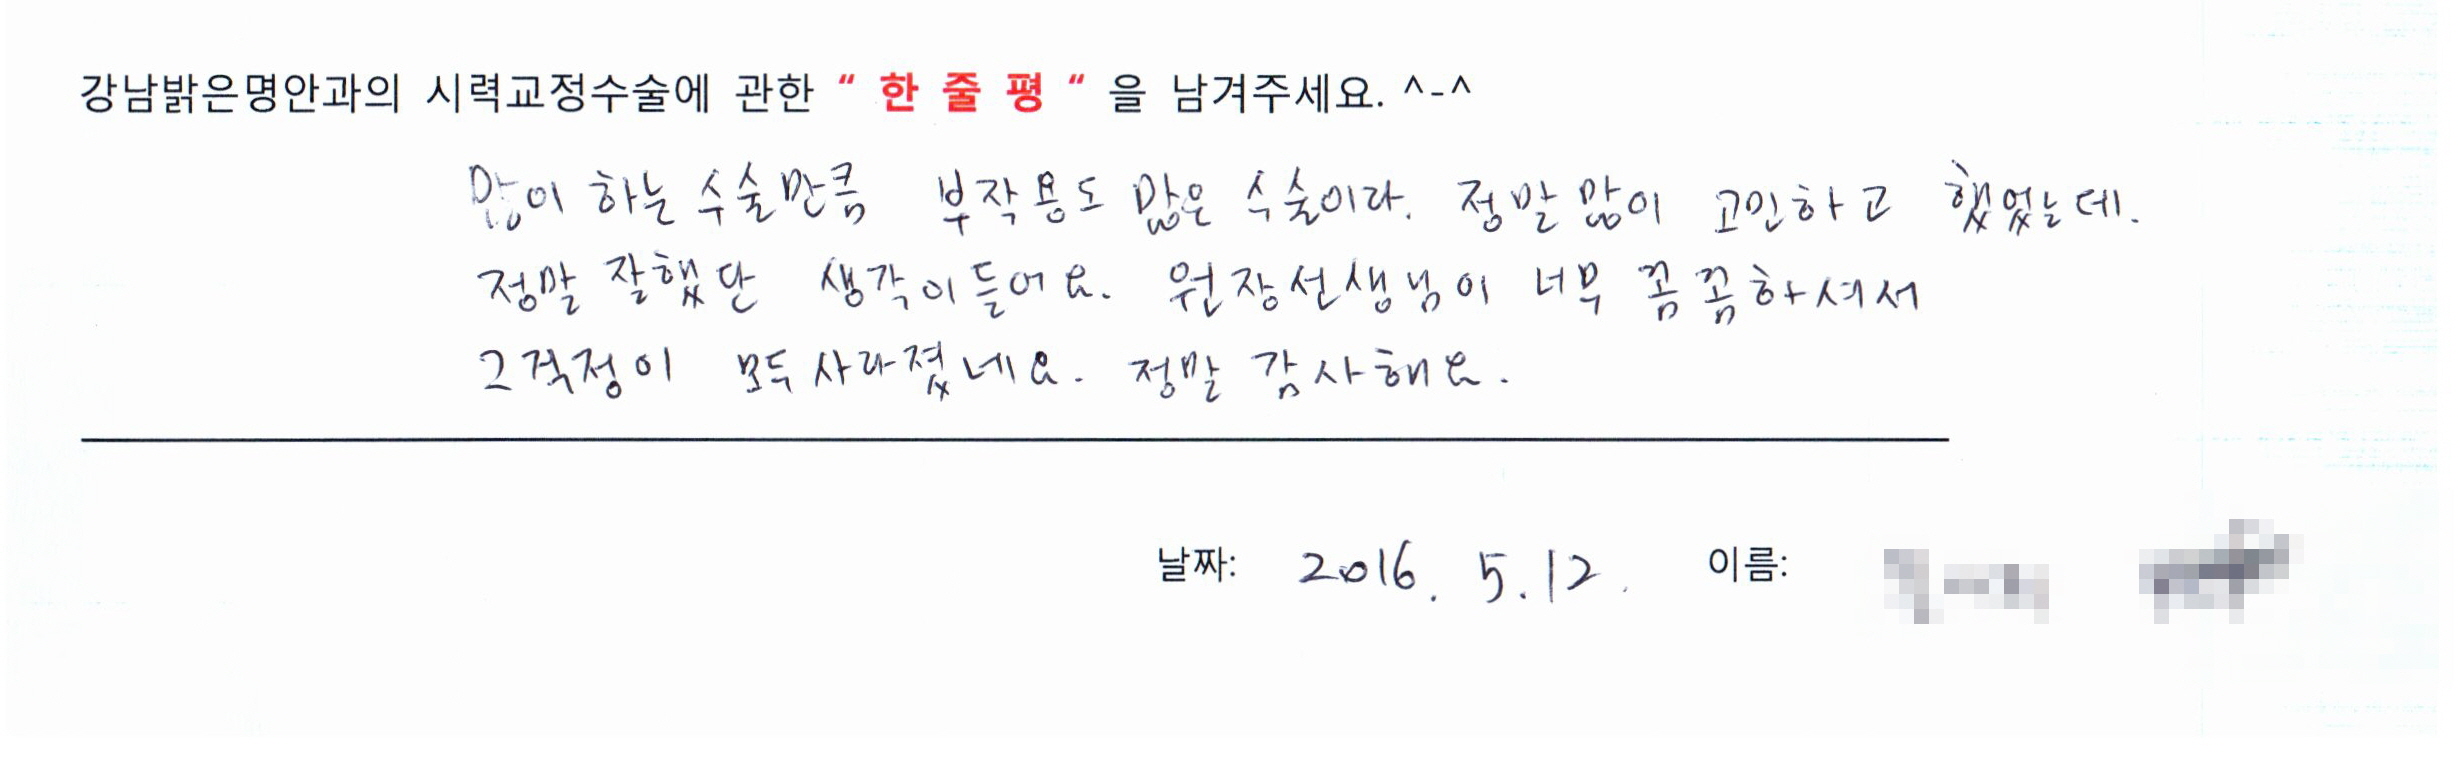 강남밝은명안과의 시력교정수술에 관한 “ 한 줄 평 “ 을 남겨주세요. ^-^
많이 하는 수술만큼 부작용도 많은 수술이라. 정말 많이 고민하고 했었는데.
정말 잘했단 생각이 들어요. 원장선생님이 너무 꼼꼼하셔서
그 걱정이 모두 사라졌네요. 정말 감사해요.
날짜: 2016. 5. 12. 이름: